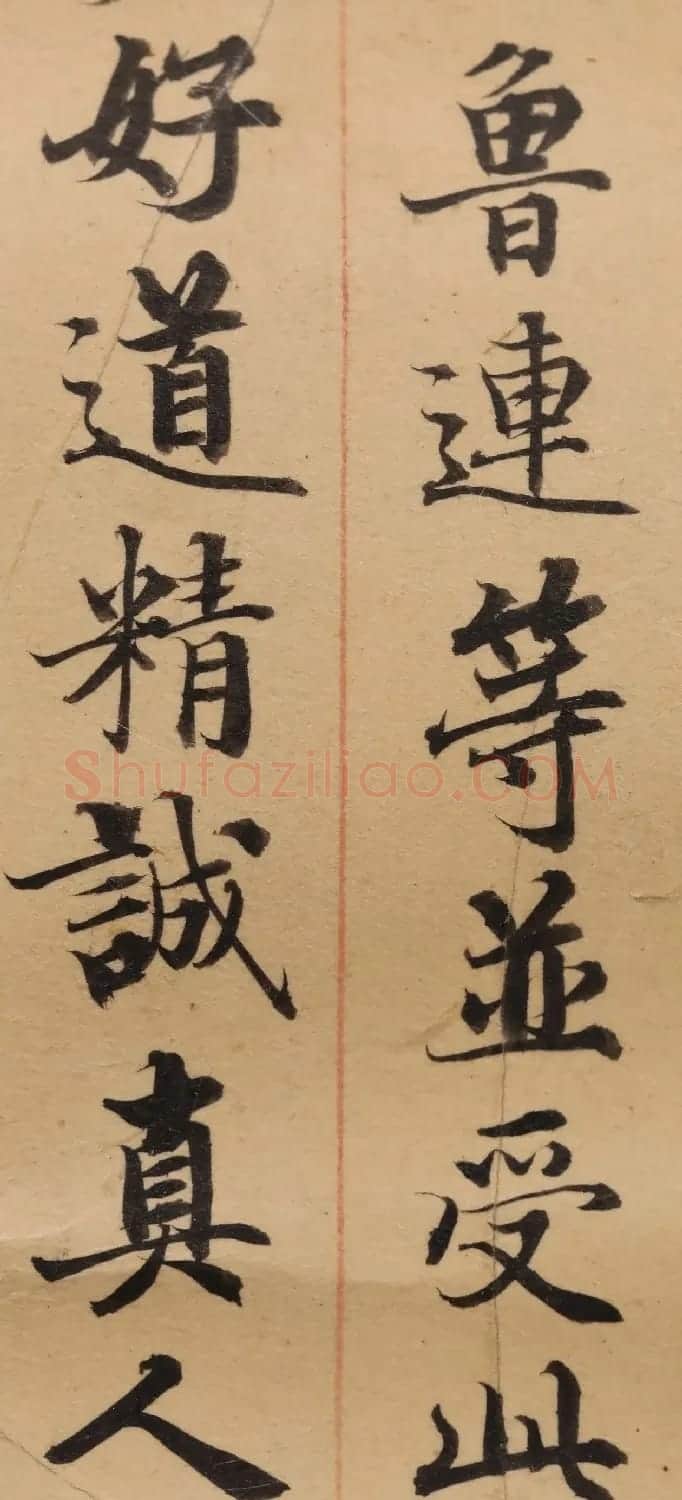 魯連等並受此
好道精誠真人
Shufaziliao.COM